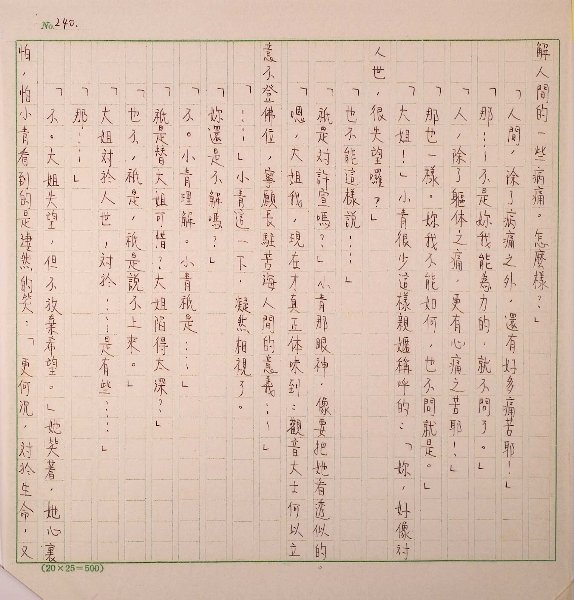 No. 240.
解人間的一些病痛。怎麼樣？」
「人間，除了病痛之外，還有好多痛苦耶！」
「那……不是妳我能意力的，就不問了。」
「人，除了軀体之痛，更有心痛之苦耶！」
「那也一樣。妳我不能如何，也不問就是。」
「大姐！」小青很少這樣親嫟稱呼的：「妳，好像對
人世，很失望囉？」
「也不能這樣說……」
「祇是对許宣嗎？」小青那眼神，像要把她看透似的。
「嗯，大姐我，現在才真正体味到：觀音大士何以立
意不登佛位，寧願長駐苦海人間的意義……」
「……」小青這一下，凝然相視了。
「妳還是不解嗎？」
「不。小青理解。小青祇是……」
「祇是替大姐可惜？大姐陷得太深？」
「也不，祇是，祇是說不上來。」
「大姐對於人世，对於……是有些……」
「那……」
「不。大姐失望，但不放棄希望。」她笑著，她心裏
怕，怕小青看到的是悽然的笑：「更何況，对於生命，又
(20×25=500)